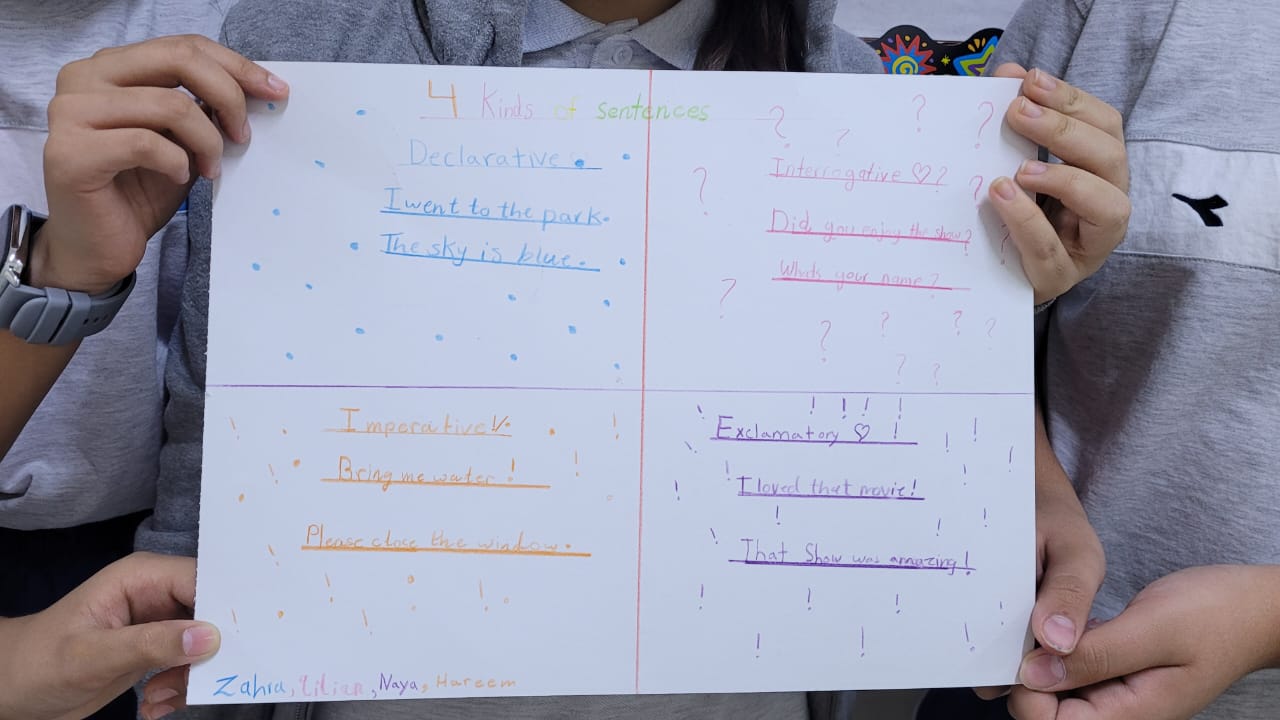 4 Kinds of sentences
Declarative.
I went to the park.
The sky is blue.
Interrogative ♡?
Did you enjoy the show?
Whats your name?
Imperative!/.
Bring me water!
Please close the window.
Exclamatory ♡ !
I loved that movie!
That Show was amazing!
Zahra, Lilian, Naya, Hareem